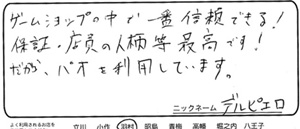 ゲームショップの中で一番信頼できる!
保証、店員の人柄等最高です!
だから、パオを利用しています。
ニックネーム デルピエロ
よく利用されるお店を
立川 小作 羽村 昭島 青梅 高幡 堀之内 八王子